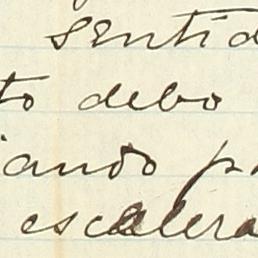 sentid
to debo
iando pa
escalera